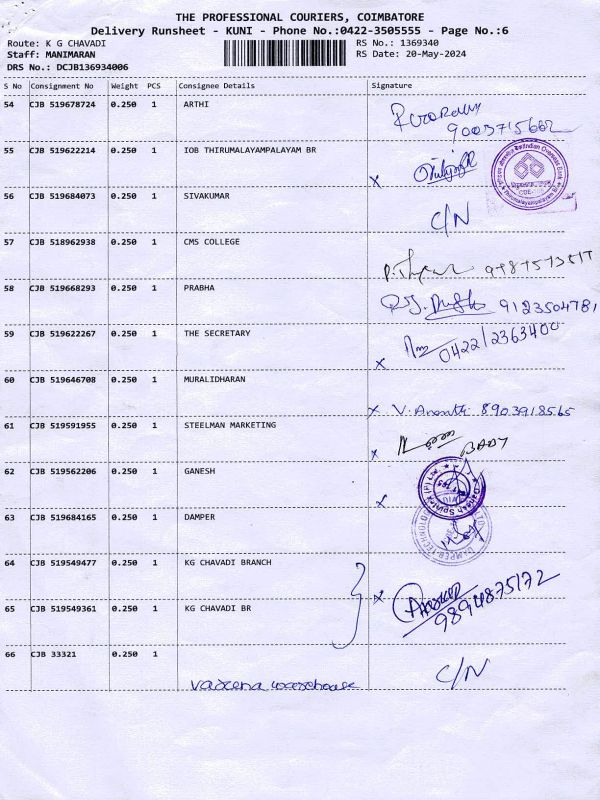 THE PROFESSIONAL COURIERS, COIMBATORE
Delivery Runsheet - KUNI - Phone No.:0422-3505555 - Page No.:6
Route: K G CHAVADI
RS No.: 1369340
Staff: MANIMARAN
RS Date: 20-May-2024
DRS No.: DCJB136934006
S No Consignment No Weight PCS Consignee Details Signature
54 CJB 519678724 0.250 1 ARTHI
9003715662
55 CJB 519622214 0.250 1 IOB THIRUMALAYAMPALAYAM BR
x
Indian Overseas Bank
56 CJB 519684073 0.250 1 SIVAKUMAR
C/N
57 CJB 518962938 0.250 1 CMS COLLEGE
58 CJB 519668293 0.250 1 PRABHA
9123504781
59 CJB 519622267 0.250 1 THE SECRETARY
x 0422/2363400
60 CJB 519646708 0.250 1 MURALIDHARAN
x V. Ananth 8903918565
61 CJB 519591955 0.250 1 STEELMAN MARKETING
x
62 CJB 519562206 0.250 1 GANESH
x
63 CJB 519684165 0.250 1 DAMPER
64 CJB 519549477 0.250 1 KG CHAVADI BRANCH
x
65 CJB 519549361 0.250 1 KG CHAVADI BR
9894875172
66 CJB 33321 0.250 1
C/N
warehouse